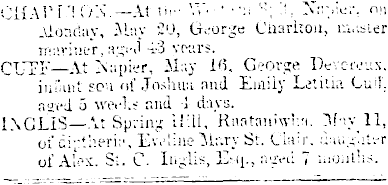 CHARLTON.—At the Western Spit, Napier, on
Monday, May 20, George Charlton, master
mariner, aged 43 years.
CUFF—At Napier, May 16, George Devereux,
infant son of Joshua and Emily Letitia Cuff,
aged 5 weeks and 4 days.
INGLIS—At Spring Hill, Ruataniwha, May 11,
of diptheria, Eveline Mary St. Clair, daughter
of Alex. St. C. Inglis, Esq., aged 7 months.